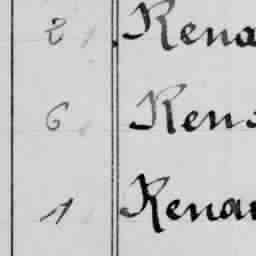 2 Rena
6 Rena
1 Renau